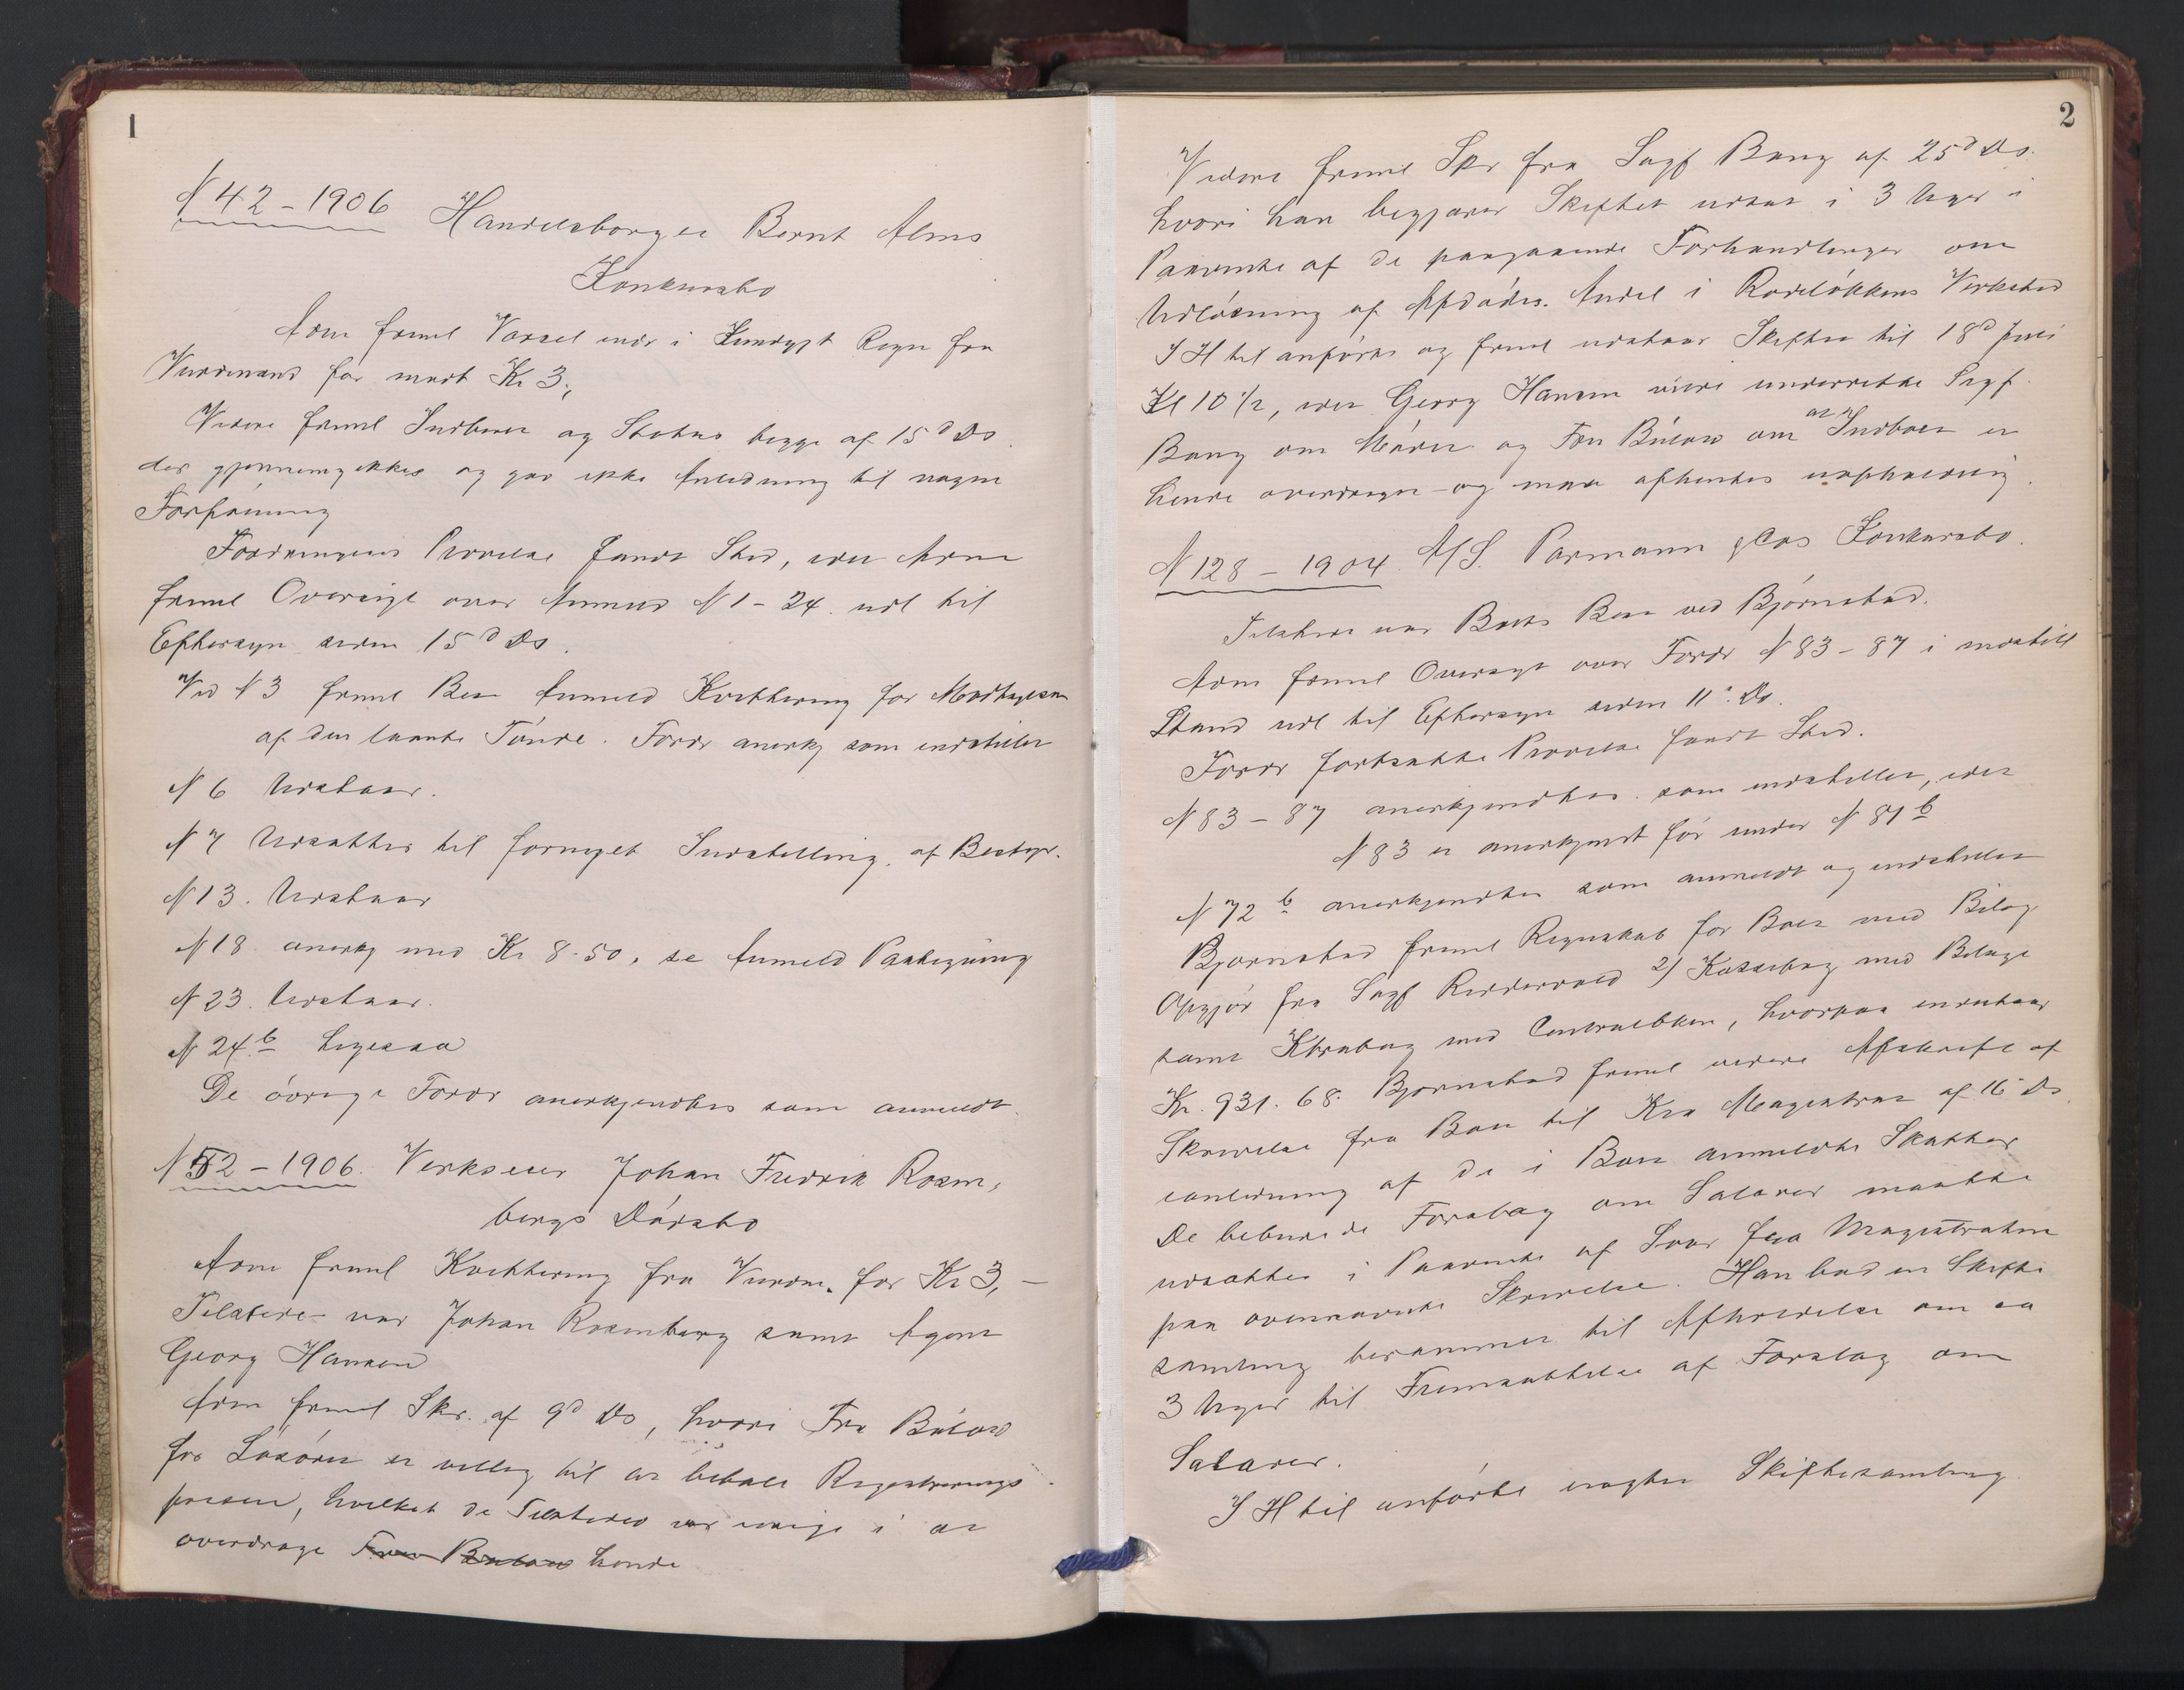 1
N 42 - 1906 Handelsborger Bernt Alms
Konkursbo
Adm freml Varsel endv i Kundgjt Regn fra
Vurdmænd for mødt Kr 3,
Videre freml Indberet og Status begge af 15d Ds
der gjennemgikkes og gav ikke Anledning til nogen
Forføining
Fordringernes Prøvelse fandt Sted, idet Adm
freml Oversigt over Anmeld N 1 - 24 udl til
Eftersyn siden 15d Ds.
Ved N 3 freml Best Anmeld Kvittering for Modtagelsen
af den laante Tønde. Fordr anerkj som indstillet
N 6 Udstaar.
N 7 Udsattes til fornyet Indstilling af Bestyr.
N 13. Udstaar
N 18 anerkj med Kr 8.50, se Anmeld Paategning
N 23. Udstaar.
N 24b ligesaa
De øvrige Fordr anerkjendtes som anmeldt.
N 52 - 1906. Verkseier Johan Fredrik Rosen,
bergs Dødsbo
Adm freml Kvittering fra Vurdm. for Kr 3,-
Tilstede var Johan Rosenberg samt Agent
Georg Hansen
Adm freml Skr. af 9d Ds, hvori Fru Bülow
for Løsøret er villig til at betale Registrerings
prisen, hvilket de Tilstedev var enige i at
overdrage Fru Bülow hende
2
Videre freml Skr fra Sagf Bang af 25d Ds.
hvori han begjærer Skiftet udsat i 3 Uger i
Paavente af de paagaaende Forhandlinger om
Udløsning af Afdødes Andel i Rodeløkkens Verksted
I H til anførte og freml udstaar Skiftet til 18d Juni
Kl 10 1/2, idet Georg Hansen vilde underrette Sagf
Bang om Mødet og Fru Bülow om at Indboet er
hende overdraget og maa afhentes uopholdelig.
N 128 - 1904 A/S. Parmann & Cos Konkursbo.
Tilstede var Boets Best ved Bjørnstad.
Adm freml Oversigt over Fordr N 83 - 87 i indstill
Stand udl til Eftersyn siden 11. Ds.
Fordr fortsatte Prøvelse fandt Sted.
N 83 - 87 anerkjendtes som indstillet, idet
N 83 er anerkjendt før under N 81b
N 72b anerkjendtes som anmeldt og indstillet
Bjørnstad freml Regnskab for Boet med Bilag
Opgjør fra Sagf Reddervold 2) Kassebog med Bilage
samt Ktrabog med Centralbken, hvorpaa indestaar
Kr. 931.68. Bjørnstad freml videre Afskrift af
Skrivelse fra Boet til Kra Magistrat af 16 Ds
ianledning af de i Boet anmeldte Skatter
De bebudede Forslag om Salarer maatte
udsattes i Paavente af Svar fra Magistraten
paa ovennævnte Skrivelse. Han bad en Skifte
samling berammet til Afholdelse om ca
3 Uger til Fremsættelse af Forslag om
Salarer.
I H til anførte vagtes Skiftesamling